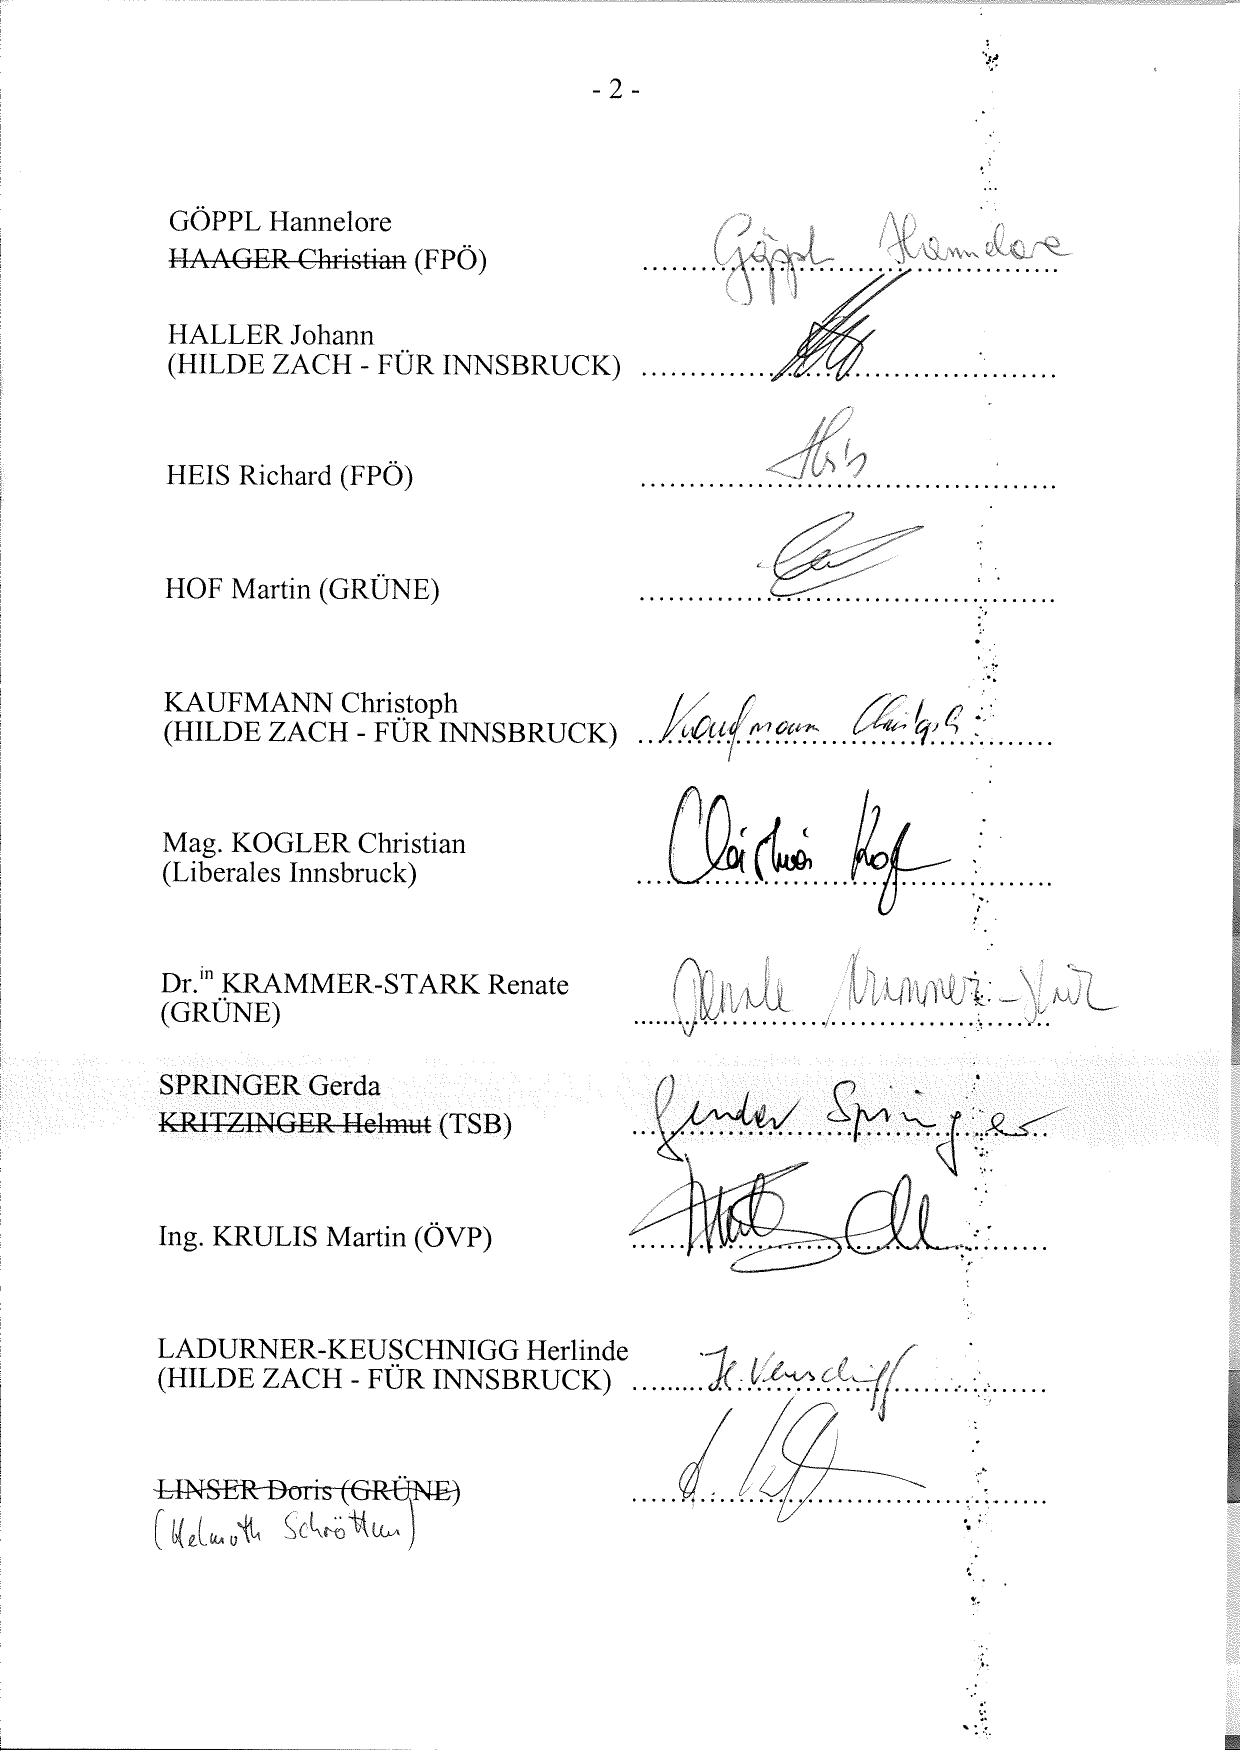 - 2 -
GÖPPL Hannelore
HAAGER Christian (FPÖ) Göppl Hannelore
HALLER Johann
(HILDE ZACH - FÜR INNSBRUCK)
HEIS Richard (FPÖ) Heis
HOF Martin (GRÜNE)
KAUFMANN Christoph
(HILDE ZACH - FÜR INNSBRUCK) Kaufmann Christoph
Mag. KOGLER Christian
(Liberales Innsbruck) Christian Kogler
Dr.in KRAMMER-STARK Renate
(GRÜNE) Renate Krammer-Stark
SPRINGER Gerda
KRITZINGER Helmut (TSB) Springer
Ing. KRULIS Martin (ÖVP)
LADURNER-KEUSCHNIGG Herlinde
(HILDE ZACH - FÜR INNSBRUCK) H. Keuschnigg
LINSER Doris (GRÜNE)
(Helmuth